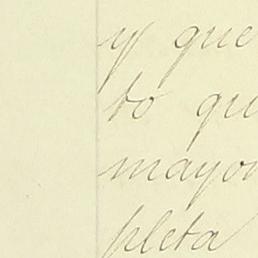 y que
to qu
mayor
pleta